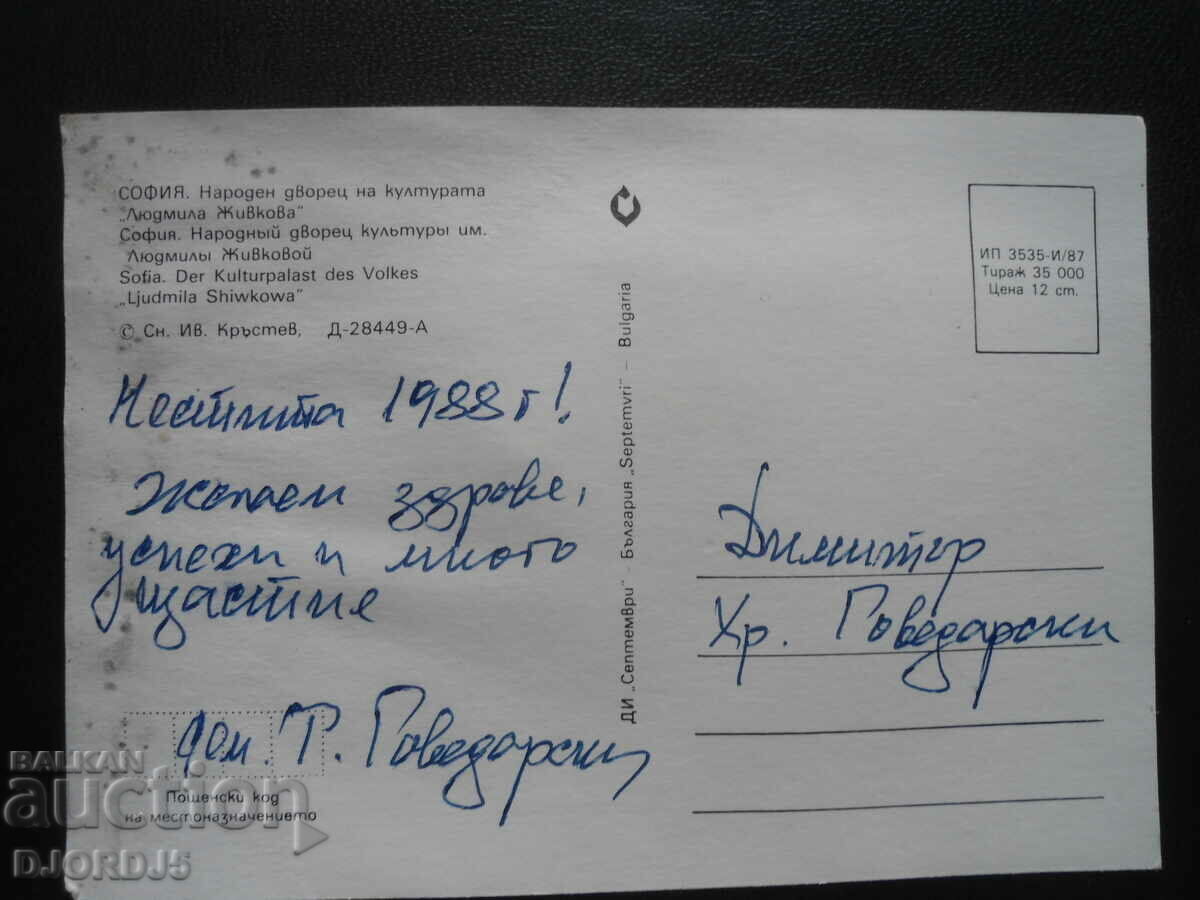 СОФИЯ. Народен дворец на културата
„Людмила Живкова"
София. Народный дворец культуры им.
Людмилы Живковой
Sofia. Der Kulturpalast des Volkes
„Ljudmila Shiwkowa"
© Сн. Ив. Кръстев, Д-28449-А
Честита 1988 г!
Желаем здраве,
успехи и много
щастие
фам. Т. Говедарски
Пощенски код
на местоназначението
ДИ „Септември" - България „Septemvri" - Bulgaria
ИП 3535-И/87
Тираж 35 000
Цена 12 ст.
Димитър
Хр. Говедарски
BALKAN
auction
DJORDJ5